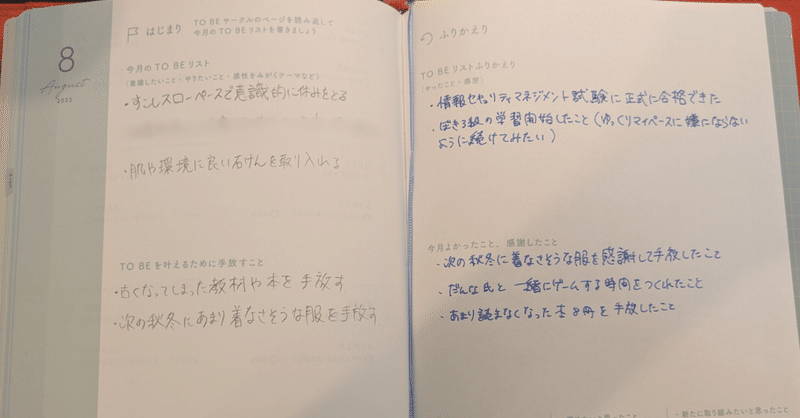 8
August
2023
はじまり
TO BE サークルのページを読み返して
今月の TO BE リストを書きましょう
今月の TO BE リスト
（意識したいこと・やりたいこと・感性をみがくテーマなど）
・すこしスローペースで意識的に休みをとる
・肌や環境に良い石けんを取り入れる
TO BE を叶えるために手放すこと
・古くなってしまった教材や本を手放す
・次の秋冬にあまり着なさそうな服を手放す
ふりかえり
TO BE リストふりかえり
（やったこと・感想）
・情報セキュリティマネジメント試験に正式に合格できた
・3級の学習開始したこと（ゆっくりマイペースに嫌にならない
ように続けてみたい）
今月よかったこと、感謝したこと
・次の秋冬に着なさそうな服を感謝して手放したこと
・だんな氏と一緒にゲームする時間をつくれたこと
・あまり読まなくなった本8冊を手放したこと
と思ったこと
・新たに取り組みたいと思ったこと